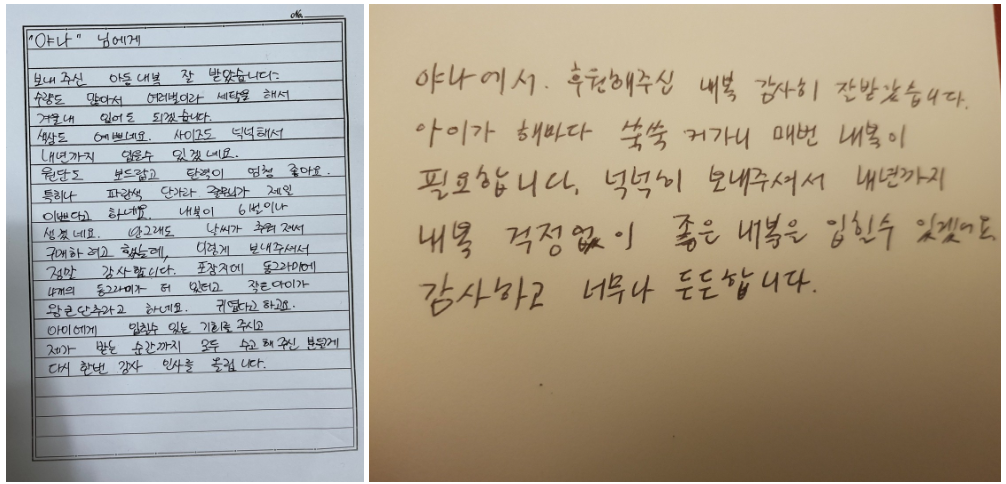 No.
"야나" 님에게
보내 주신 아동 내복 잘 받았습니다.
수량도 많아서 여러벌이라 세탁을 해서
겨울내 입어도 되겠습니다.
색상도 예쁘네요. 사이즈도 넉넉해서
내년까지 입을수 있겠네요.
원단도 보드랍고 탄력이 엄청 좋아요.
특히나 파랑색 단가라 줄무늬가 제일
이쁘다고 하네요. 내복이 6벌이나
생겼네요. 안그래도 날씨가 추워져서
구매하려고 했는데, 이렇게 보내주셔서
정말 감사합니다. 포장지에 동그라미에
4개의 동그라미가 더 있다고 작은아이가
왕큰단추라고 하네요. 귀엽다고 하고요.
아이에게 입힐수 있는 기회를 주시고
제가 받는 순간까지 모두 수고해 주신 분들께
다시 한번 감사 인사를 올립니다.
야나에서. 후원해주신 내복 감사히 잔받았습니다.
아이가 해마다 쑥쑥 커가니 매번 내복이
필요합니다. 넉넉히 보내주셔서 내년까지
내복 걱정없이 좋은 내복은 입힐수 있겠어요
감사하고 너무나 든든합니다.